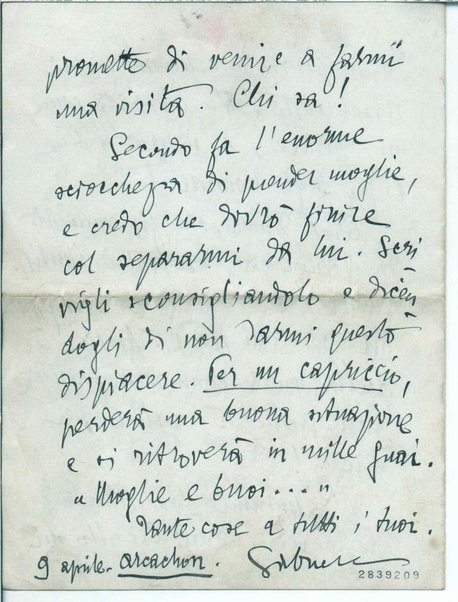 promette di venire a farmi
una visita. Chi sa!
Secondo fa l'enorme
sciocchezza di prender moglie,
e credo che dovrò finire
col separarmi da lui. Scri
vigli sconsigliandolo e dicen
dogli di non darmi questo
dispiacere. Per un capriccio,
perderà una buona situazione
e si ritroverà in mille guai.
"Moglie e buoi...."
Tante cose a tutti i tuoi.
9 aprile. Arcachon. Gabriele
2839209